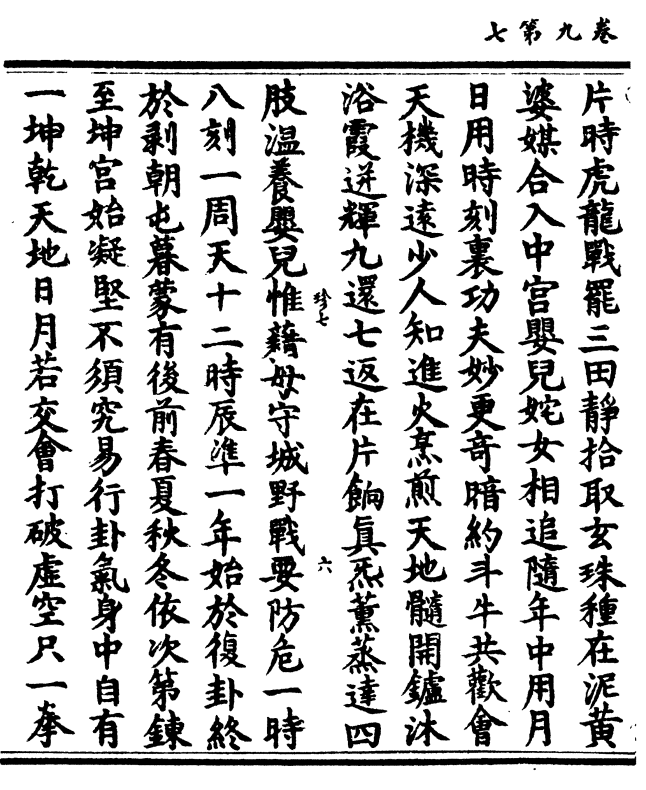 卷九第七
片時虎龍戰罷三田靜拾取玄珠種在泥黃
婆媒合入中宮嬰兒姹女相追隨年中用月
日用時刻裏功夫妙更竒暗約斗牛共歡會
天機深遠少人知進火烹煎天地髓開鑪沐
浴霞迸輝九還七返在片餉真炁薰蒸達四
珍七
六
肢温養嬰兒惟藉母守城野戰要防危一時
八刻一周天十二時辰準一年始於復卦終
於剥朝屯暮蒙有後前春夏秋冬依次第鍊
至坤宮始凝堅不須究易行卦氣身中自有
一坤乾天地日月若交會打破虛空只一拳